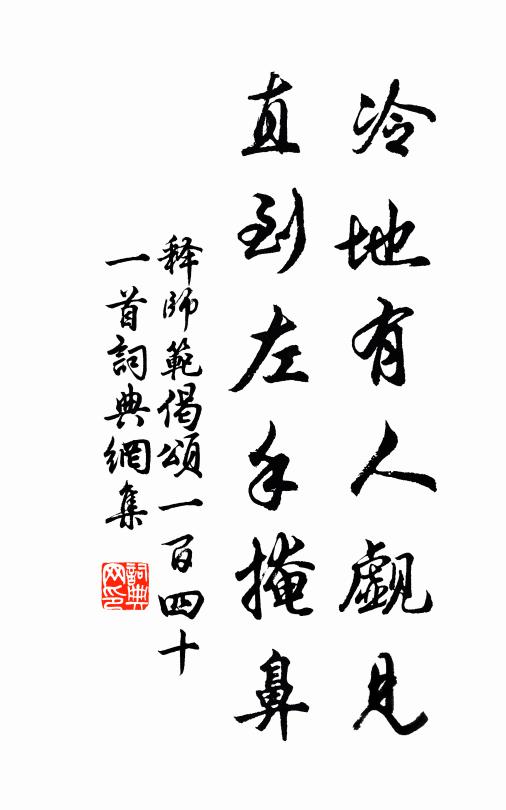 冷地有人覷見
直到左手掩鼻
释師範偈頌一百四十
一首詞典網集
詞典
网印